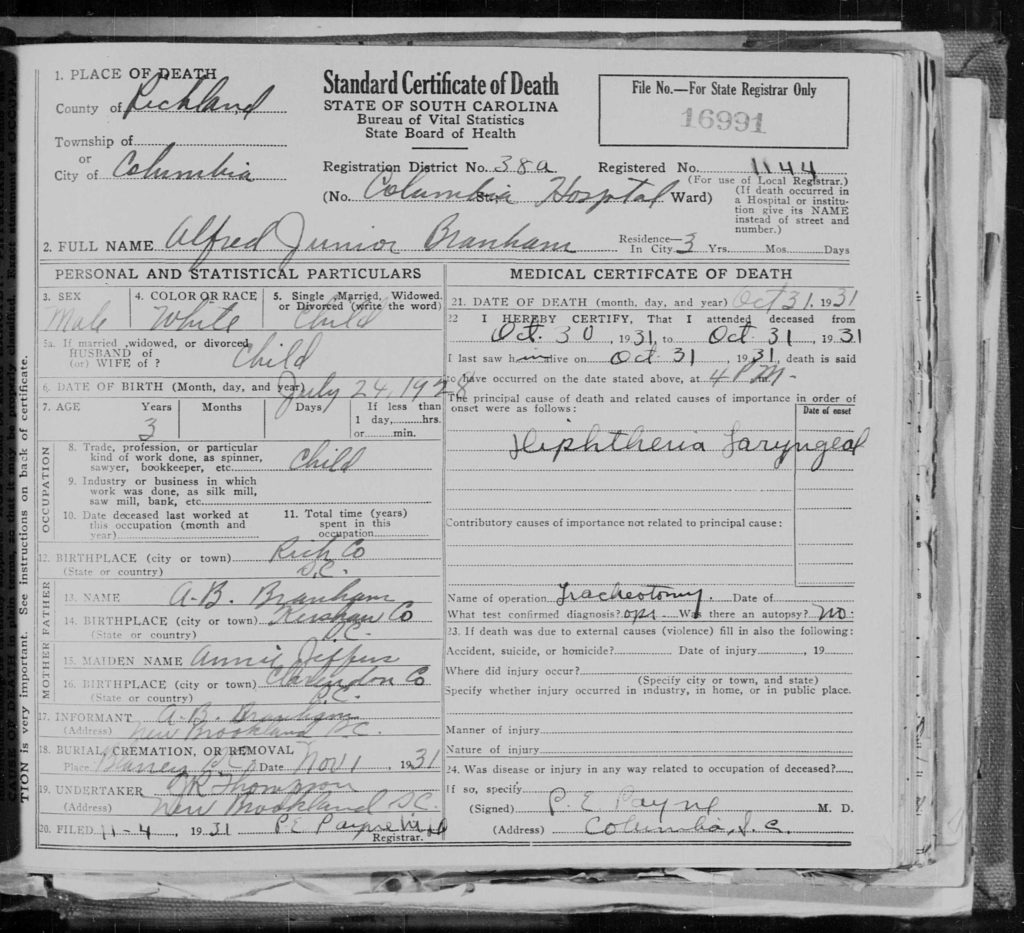 1. PLACE OF DEATH
County of Richland
Township of
or
City of Columbia
Standard Certificate of Death
STATE OF SOUTH CAROLINA
Bureau of Vital Statistics
State Board of Health
File No.—For State Registrar Only
16991
Registration District No. 38a Registered No. 1144
(For use of Local Registrar.)
(No. Columbia Hospital Ward)
(If death occurred in a Hospital or institution give its NAME instead of street and number.)
2. FULL NAME Alfred Junior Branham Residence In City 3 Yrs. Mos. Days
PERSONAL AND STATISTICAL PARTICULARS
3. SEX Male
4. COLOR OR RACE White
5. Single, Married, Widowed, or Divorced (write the word) Child
5a. If married, widowed, or divorced
HUSBAND of
(or) WIFE of ? Child
6. DATE OF BIRTH (Month, day, and year) July 24, 1928
7. AGE Years 3 Months Days If less than
1 day, hrs.
or min.
OCCUPATION
8. Trade, profession, or particular
kind of work done, as spinner,
sawyer, bookkeeper, etc. Child
9. Industry or business in which
work was done, as silk mill,
saw mill, bank, etc.
10. Date deceased last worked at
this occupation (month and
year)
11. Total time (years)
spent in this
occupation
12. BIRTHPLACE (city or town) Rich Co
(State or country) S.C.
FATHER
13. NAME A.B. Branham
14. BIRTHPLACE (city or town) Kershaw Co
(State or country) S.C.
MOTHER
15. MAIDEN NAME Annie Jeffers
16. BIRTHPLACE (city or town) Clarendon Co
(State or country) S.C.
17. INFORMANT A.B. Branham
(Address) New Brookland S.C.
18. BURIAL, CREMATION, OR REMOVAL
Place Blaney S.C. Date Nov 1, 1931
19. UNDERTAKER Thompson
(Address) New Brookland S.C.
20. FILED 11-4, 1931 P.E. Payne M.D.
Registrar.
MEDICAL CERTIFCATE OF DEATH
21. DATE OF DEATH (month, day, and year) Oct 31, 1931
22 I HEREBY CERTIFY, That I attended deceased from
Oct. 30, 1931, to Oct 31, 1931
I last saw him alive on Oct 31, 1931, death is said
to have occurred on the date stated above, at 4 P.M.
The principal cause of death and related causes of importance in order of
onset were as follows:
Date of onset
Diphtheria Laryngeal
Contributory causes of importance not related to principal cause:
Name of operation Tracheotomy. Date of
What test confirmed diagnosis? opr Was there an autopsy? no.
23. If death was due to external causes (violence) fill in also the following:
Accident, suicide, or homicide? Date of injury, 19
Where did injury occur?
(Specify city or town, and state)
Specify whether injury occurred in industry, in home, or in public place.
Manner of injury
Nature of injury
24. Was disease or injury in any way related to occupation of deceased?
If so, specify
(Signed) P. E. Payne M. D.
(Address) Columbia, S.C.
TION is very important. See instructions on back of certificate.